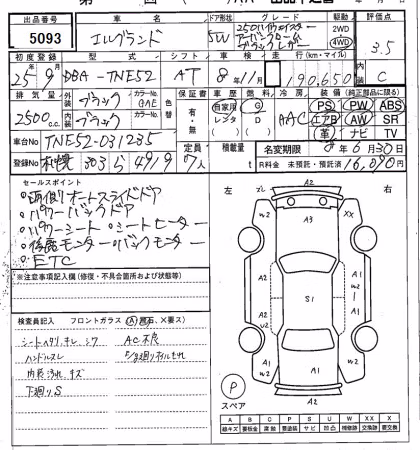 出品番号 車名 ドア形状 グレード 駆動 評価点
5093 エルグランド 5W 250ハイウェイスター アーバンクローム ブラックレザー 2WD 4WD 3.5
初度登録 型式 シフト 車検 走行(km・マイル) 内装
25年9月 DBA-TNE52 AT 8年11月 190,650 C
排気量 外装 ブラック カラーNo. GAE 色替 保証書 車歴 燃料 冷房 装備(純正部品に限る)
2500c.c. 内装 ブラック カラーNo. 有・無 自家用 レンタ G D AAC PS PW ABS
エアB AW SR
革 ナビ TV
車台No. TNE52-031235
登録No. 札幌 303 ら 4919 定員 7人 積載量 t 名変期限 8年6月30日
R料金 未預託・預託済 16,090円
セールスポイント
・両側オートスライドドア
・パワーバックドア
・パワーシート ・シートヒーター
・後席モニター ・バックモニター
・ETC
※注意事項記入欄(修復・不具合箇所および状態等)
検査員記入 フロントガラス (A、飛石、X要ス)
シートヘタリ、キレ、シワ AC不良
ハンドルスレ
内装汚れ、キズ
下廻りS
左 右
A2
XL A2
W2 A3 XX
W2
A2 A1 A1
S1
A2 W2
A1
A2
P
スペア
A B C P S U W X XX